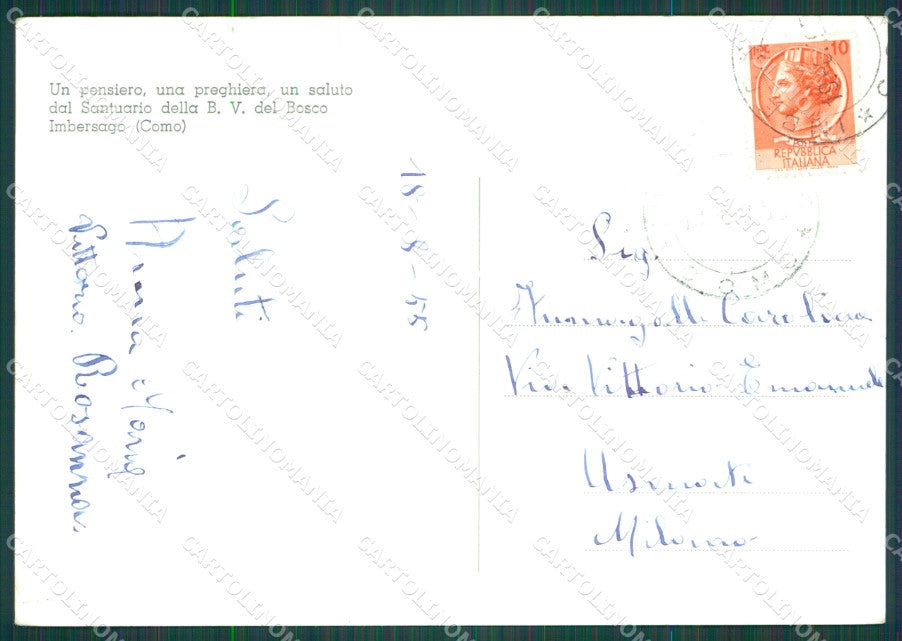 Un pensiero, una preghiera, un saluto
dal Santuario della B. V. del Bosco
Imbersago (Como)
18-8-55
Saluti
Anna Maria
Vittorio. Rosanna.
10
POSTE
REPVBBLICA
ITALIANA
COMO
Sig.
Carolina
Via Vittorio Emanuele
Usmate
Milano
CARTOLINOMANIA